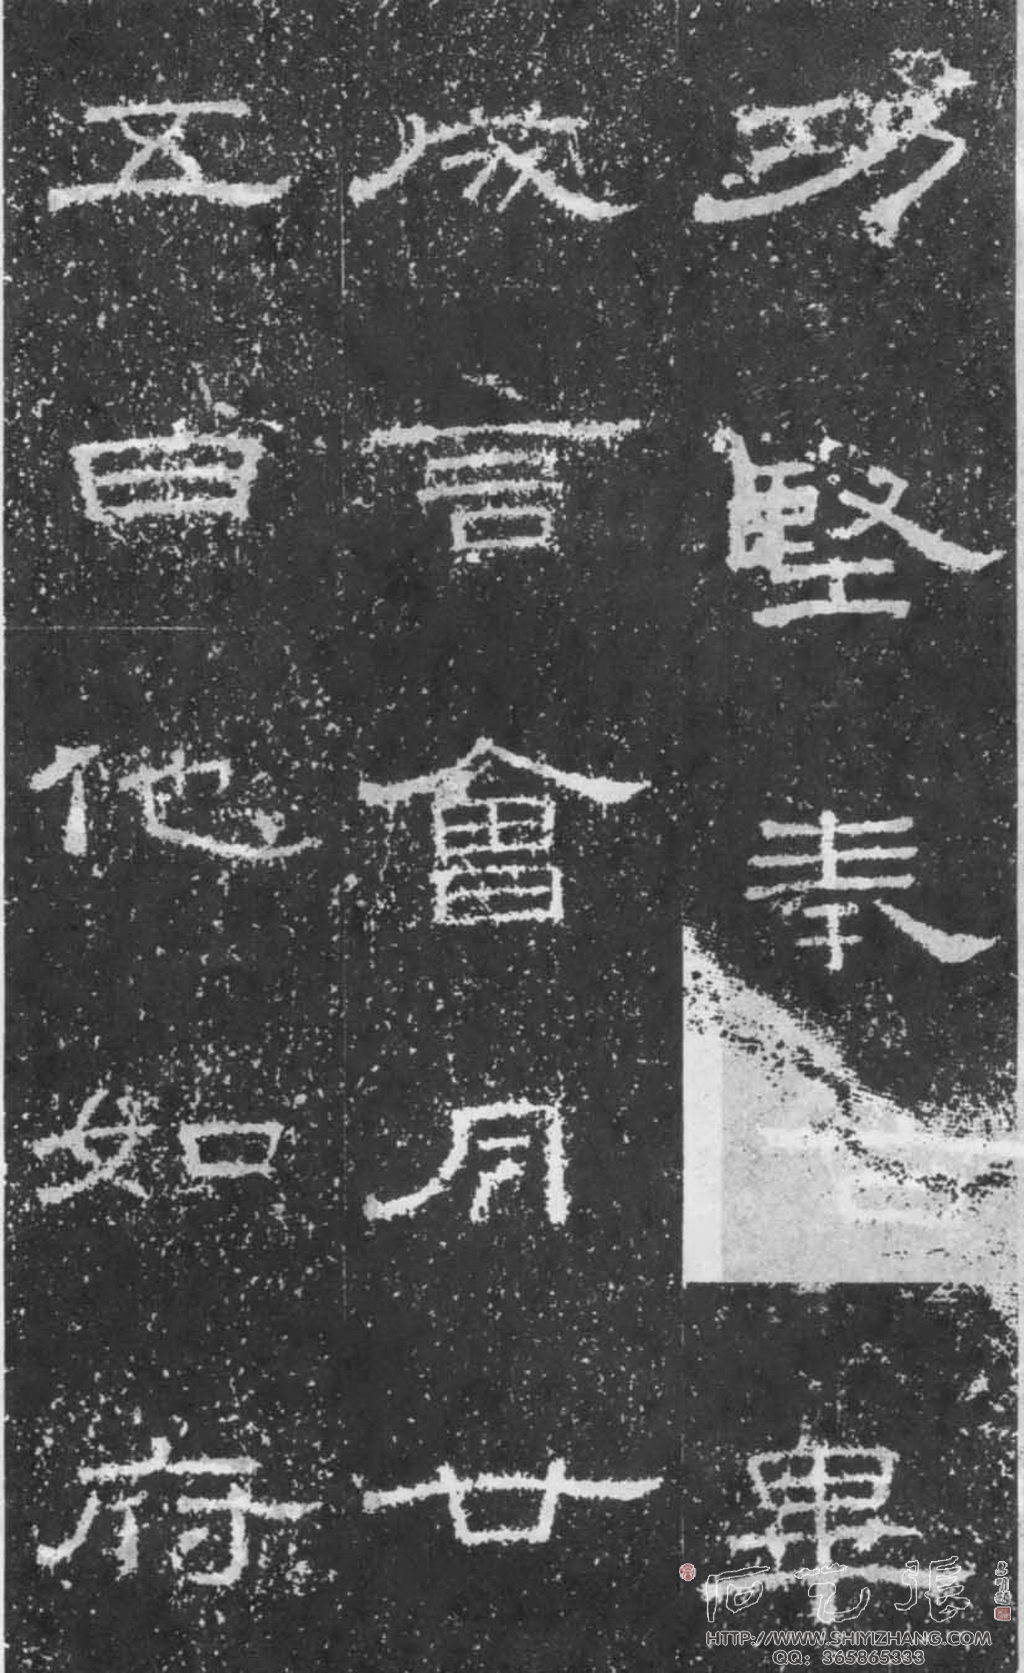 功堅奉畢
成言會月廿
五日他如府
HTTP://WWW.SHIYIZHANG.COM
QQ: 365865333